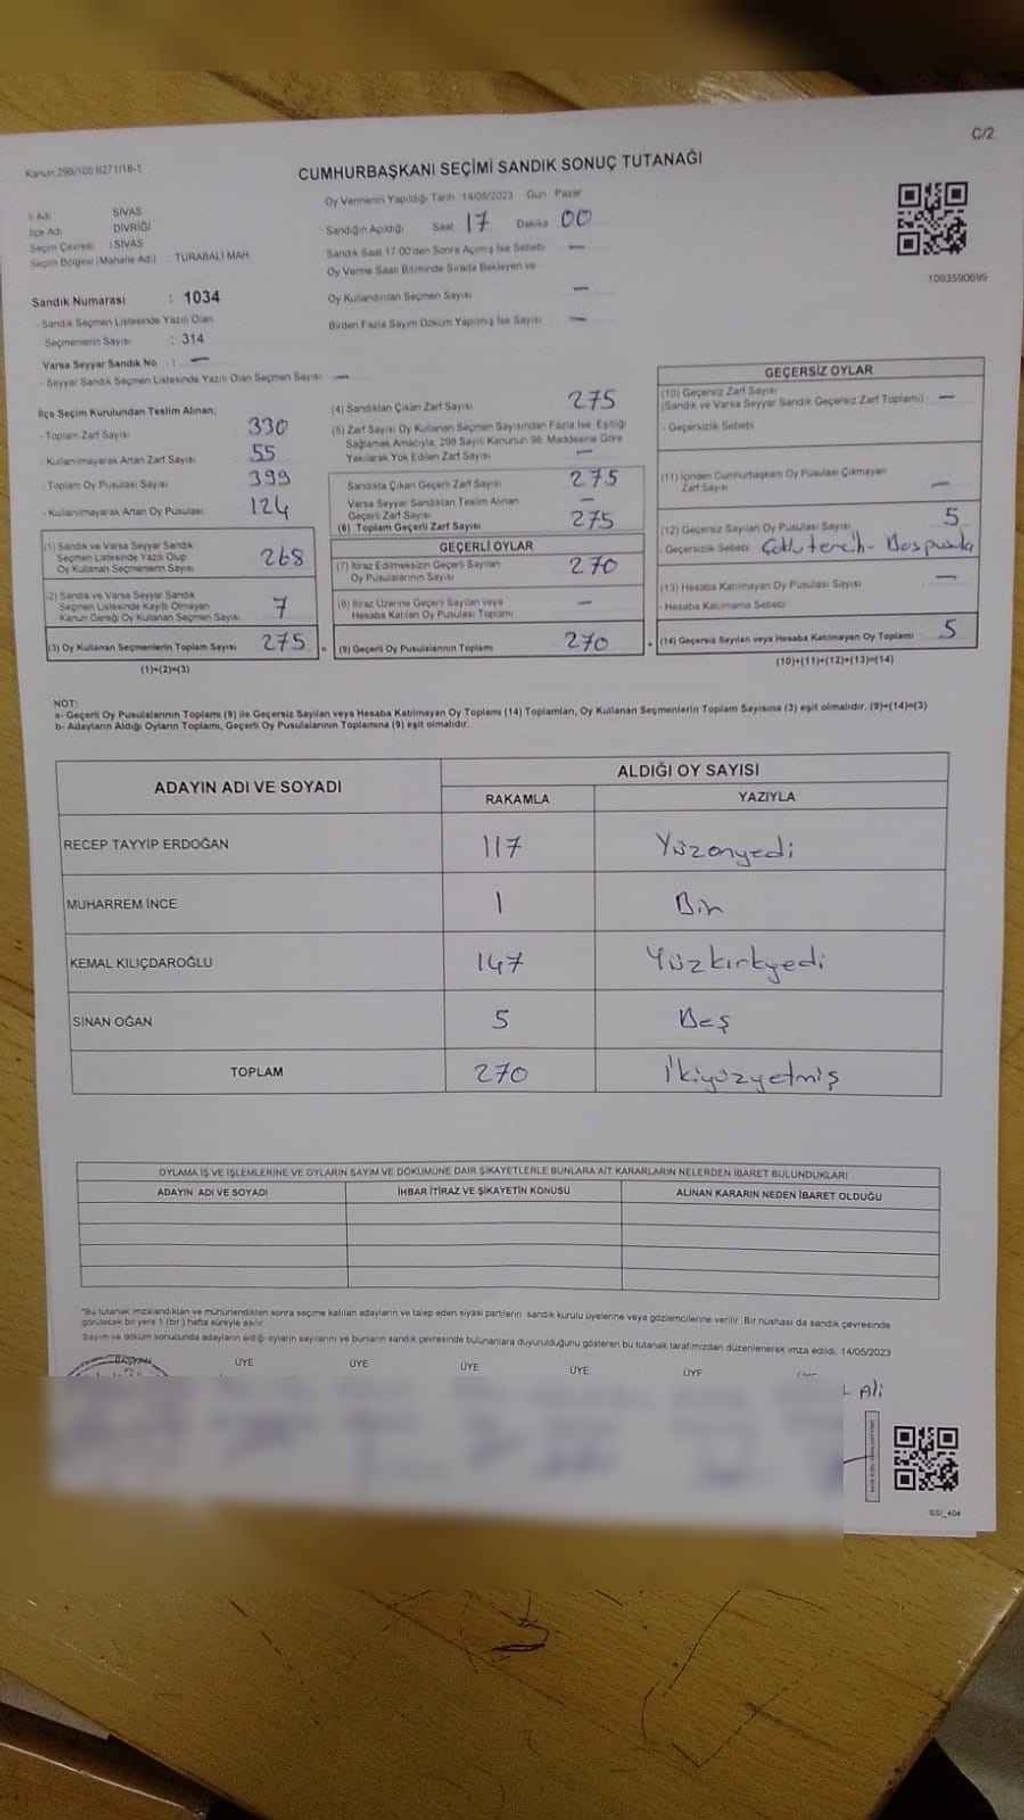 C/2
Kanun 298/100 B271/18-1
CUMHURBAŞKANI SEÇİMİ SANDIK SONUÇ TUTANAĞI
İl Adı : SİVAS
İlçe Adı : DİVRİĞİ
Seçim Çevresi : SİVAS
Seçim Bölgesi (Mahalle Adı) : TURABALİ MAH
Sandık Numarası : 1034
- Sandık Seçmen Listesinde Yazılı Olan
Seçmenlerin Sayısı : 314
Varsa Seyyar Sandık No : —
- Seyyar Sandık Seçmen Listesinde Yazılı Olan Seçmen Sayısı —
Oy Vermenin Yapıldığı Tarih : 14/05/2023 Gün : Pazar
Sandığın Açıldığı Saat 17 Dakika 00
Sandık Saat 17:00'den Sonra Açılmış İse Sebebi —
Oy Verme Saati Bitiminde Sırada Bekleyen ve
Oy Kullandırılan Seçmen Sayısı —
Birden Fazla Sayım Döküm Yapılmış İse Sayısı —
1093590699
İlçe Seçim Kurulundan Teslim Alınan;
- Toplam Zarf Sayısı 330
- Kullanılmayarak Artan Zarf Sayısı 55
- Toplam Oy Pusulası Sayısı 399
- Kullanılmayarak Artan Oy Pusulası 124
(1) Sandık ve Varsa Seyyar Sandık
Seçmen Listesinde Yazılı Olup
Oy Kullanan Seçmenlerin Sayısı 268
(2) Sandık ve Varsa Seyyar Sandık
Seçmen Listesinde Kayıtlı Olmayan
Kanun Gereği Oy Kullanan Seçmen Sayısı 7
(3) Oy Kullanan Seçmenlerin Toplam Sayısı 275 =
(1)+(2)=(3)
(4) Sandıktan Çıkan Zarf Sayısı 275
(5) Zarf Sayısı Oy Kullanan Seçmen Sayısından Fazla İse Eşitliği
Sağlamak Amacıyla, 298 Sayılı Kanunun 98. Maddesine Göre
Yakılarak Yok Edilen Zarf Sayısı —
Sandıkta Çıkan Geçerli Zarf Sayısı 275
Varsa Seyyar Sandıktan Teslim Alınan
Geçerli Zarf Sayısı —
(6) Toplam Geçerli Zarf Sayısı 275
GEÇERLİ OYLAR
(7) İtiraz Edilmeksizin Geçerli Sayılan
Oy Pusulalarının Sayısı 270
(8) İtiraz Üzerine Geçerli Sayılan veya
Hesaba Katılan Oy Pusulası Toplamı —
(9) Geçerli Oy Pusulalarının Toplamı 270 +
GEÇERSİZ OYLAR
(10) Geçersiz Zarf Sayısı
(Sandık ve Varsa Seyyar Sandık Geçersiz Zarf Toplamı) —
- Geçersizlik Sebebi
(11) İçinden Cumhurbaşkanı Oy Pusulası Çıkmayan
Zarf Sayısı —
(12) Geçersiz Sayılan Oy Pusulası Sayısı 5
- Geçersizlik Sebebi
(13) Hesaba Katılmayan Oy Pusulası Sayısı —
- Hesaba Katılmama Sebebi
(14) Geçersiz Sayılan veya Hesaba Katılmayan Oy Toplamı 5
(10)+(11)+(12)+(13)=(14)
NOT:
a- Geçerli Oy Pusulalarının Toplamı (9) ile Geçersiz Sayılan veya Hesaba Katılmayan Oy Toplamı (14) Toplamları, Oy Kullanan Seçmenlerin Toplam Sayısına (3) eşit olmalıdır. (9)+(14)=(3)
b- Adayların Aldığı Oyların Toplamı, Geçerli Oy Pusulalarının Toplamına (9) eşit olmalıdır.
ADAYIN ADI VE SOYADI
ALDIĞI OY SAYISI
RAKAMLA YAZIYLA
RECEP TAYYİP ERDOĞAN 117 Yüzonyedi
MUHARREM İNCE 1 Bir
KEMAL KILIÇDAROĞLU 147 Yüzkırkyedi
SİNAN OĞAN 5 Beş
TOPLAM 270 İkiyüzyetmiş
OYLAMA İŞ VE İŞLEMLERİNE VE OYLARIN SAYIM VE DÖKÜMÜNE DAİR ŞİKAYETLERLE BUNLARA AİT KARARLARIN NELERDEN İBARET BULUNDUKLARI
ADAYIN ADI VE SOYADI İHBAR İTİRAZ VE ŞİKAYETİN KONUSU ALINAN KARARIN NEDEN İBARET OLDUĞU
*Bu tutanak imzalandıktan ve mühürlendikten sonra seçime katılan adayların ve talep eden siyasi partilerin sandık kurulu üyelerine veya gözlemcilerine verilir. Bir nüshası da sandık çevresinde
görülecek bir yere 1 (bir) hafta süreyle asılır.
Sayım ve döküm sonucunda adayların aldığı oyların sayılarını ve bunların sandık çevresinde bulunanlara duyurulduğunu gösteren bu tutanak tarafımızdan düzenlenerek imza edildi. 14/05/2023
BAŞKAN ÜYE ÜYE ÜYE ÜYE ÜYE
Ali